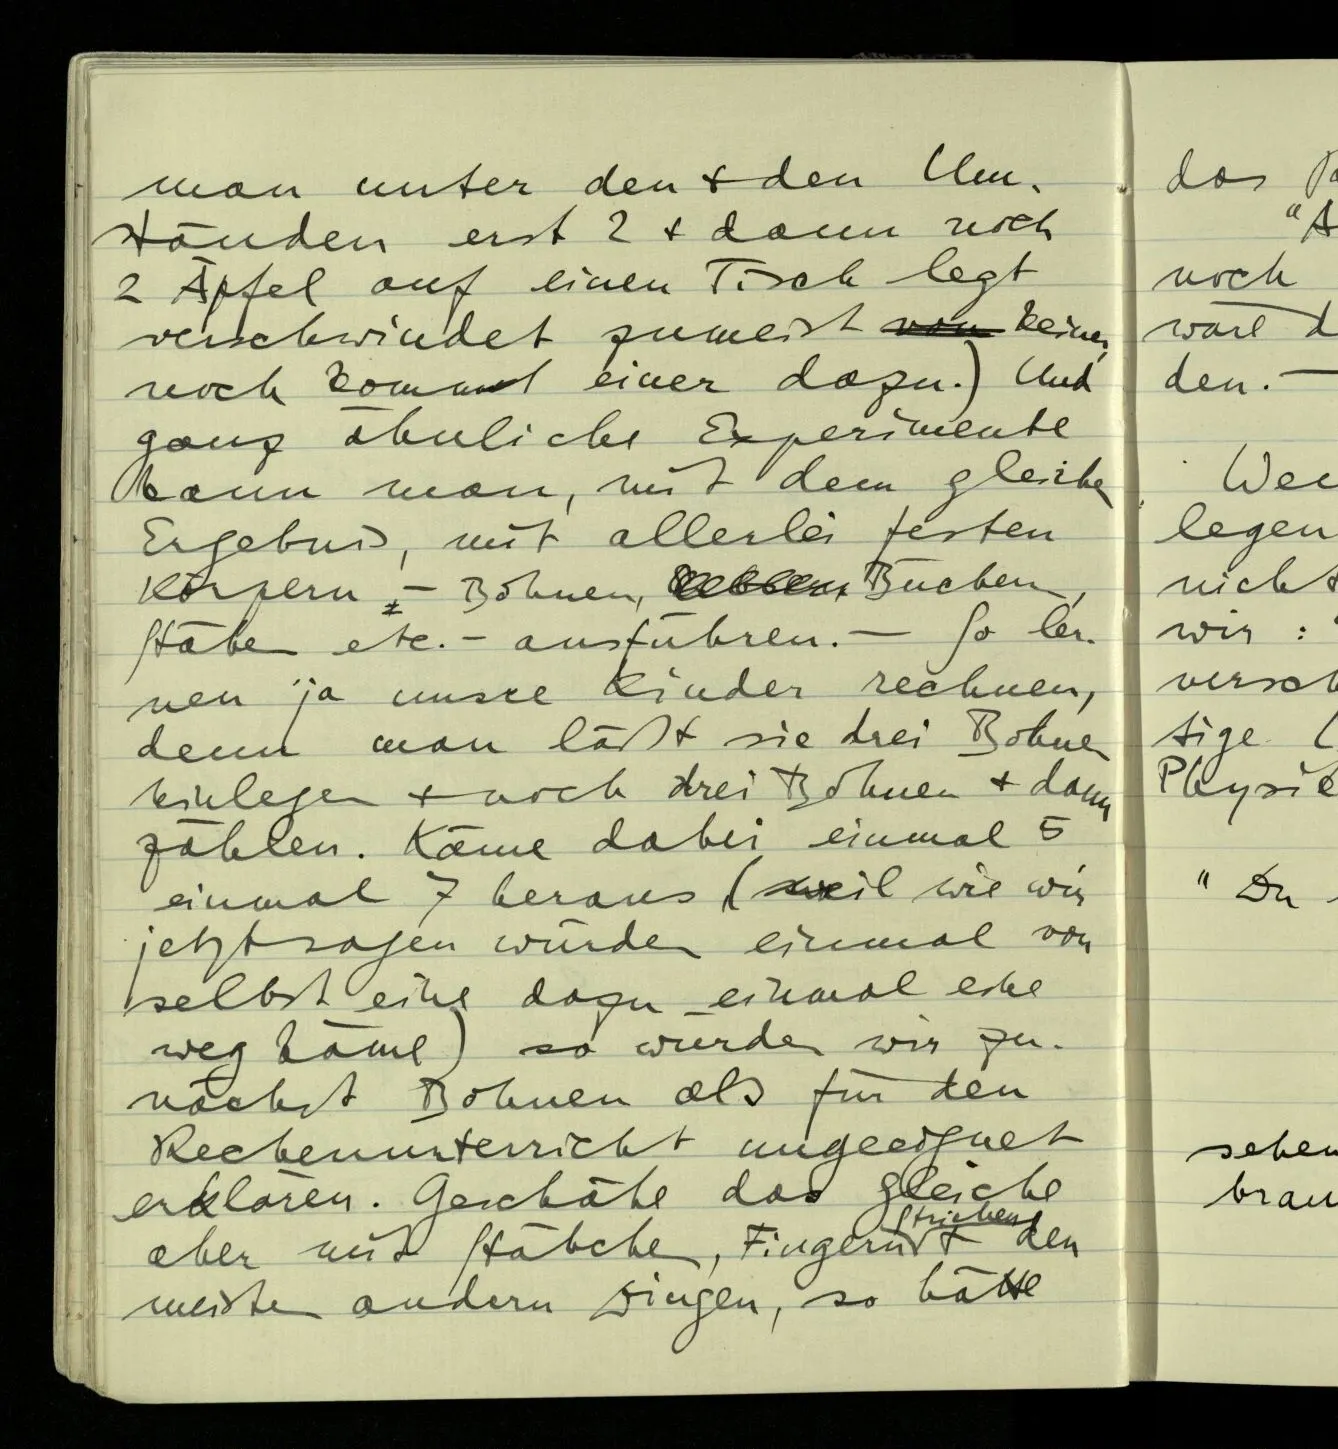 man unter den + den Um-
ständen erst 2 + dann noch
2 Äpfel auf einen Tisch legt
verschwindet zumeist von keiner,
noch kommt einer dazu.) Und
ganz ähnliche Experimente
kann man, mit dem gleichen
Ergebnis, mit allerlei festen
Körpern, – Bohnen, Büchern,
Stäben etc. – ausführen. – So ler-
nen ja unsre Kinder rechnen,
denn man läßt sie drei Bohnen
hinlegen + noch drei Bohnen + dann
zählen. Käme dabei einmal 5
einmal 7 heraus (weil wie wir
jetzt sagen würden einmal von
selbst eine dazu einmal eine
weg käme) so würden wir zu-
nächst Bohnen als für den
Rechenunterricht ungeeignet
erklären. Geschähe das gleiche
Strichen
aber mit Stäbchen, Fingern + den
meisten andern Dingen, so hätte
das
"
noch
wäre d
den. –
legen
nicht
wir :
versch
tige (
Physik
" Du
sehen
brau